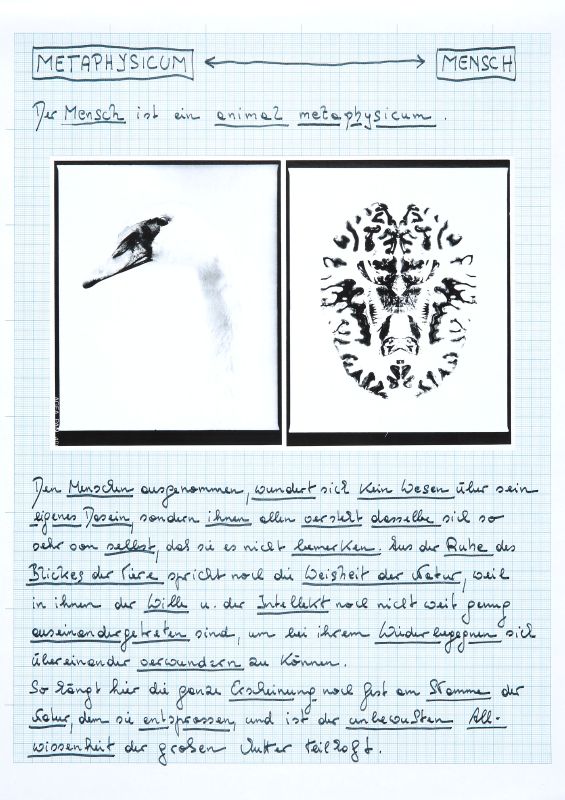 METAPHYSICUM MENSCH
Der Mensch ist ein animal metaphysicum.
Den Menschen ausgenommen, wundert sich kein Wesen über sein
eigenes Dasein, sondern ihnen allen versteht dasselbe sich so
sehr von selbst, daß sie es nicht bemerken. Aus der Ruhe des
Blickes der Tiere spricht noch die Weisheit der Natur, weil
in ihnen der Wille u. der Intellekt noch nicht weit genug
auseinandergetreten sind, um bei ihrem Wiederbegegnen sich
übereinander verwundern zu können.
So hängt hier die ganze Erscheinung noch fest am Stamme der
Natur, dem sie entsprossen, und ist der unbewußten All-
wissenheit der großen Mutter teilhaft.